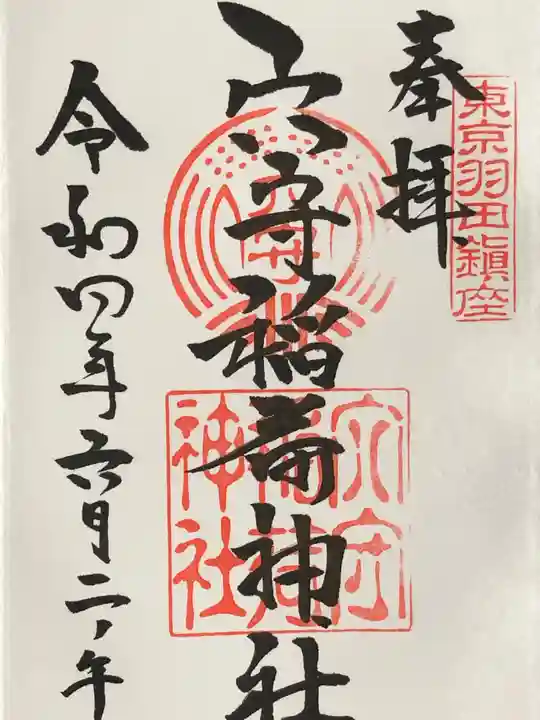 東京羽田鎮座
奉拝
穴守稲荷神社
穴守
稲荷
神社
令和四年六月二ノ午